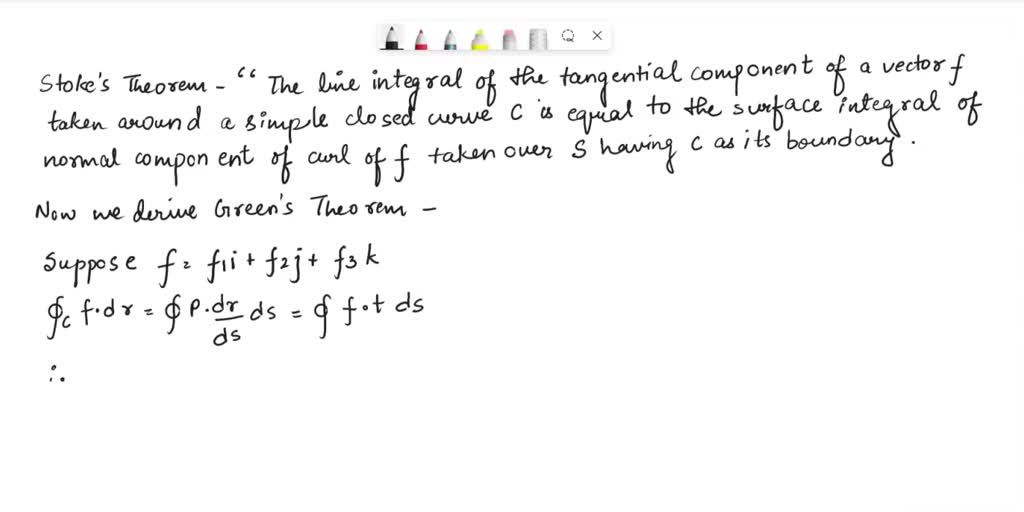 Stoke's Theorem - “ The line integral of the tangential component of a vector f
taken around a simple closed curve C is equal to the surface integral of
normal component of curl of f taken over S having C as its boundary.
Now we derive Green's Theorem -
Suppose f = f1i + f2j + f3k
∮c f·dr = ∮ P·dr/ds ds = ∮ f·t ds
∴